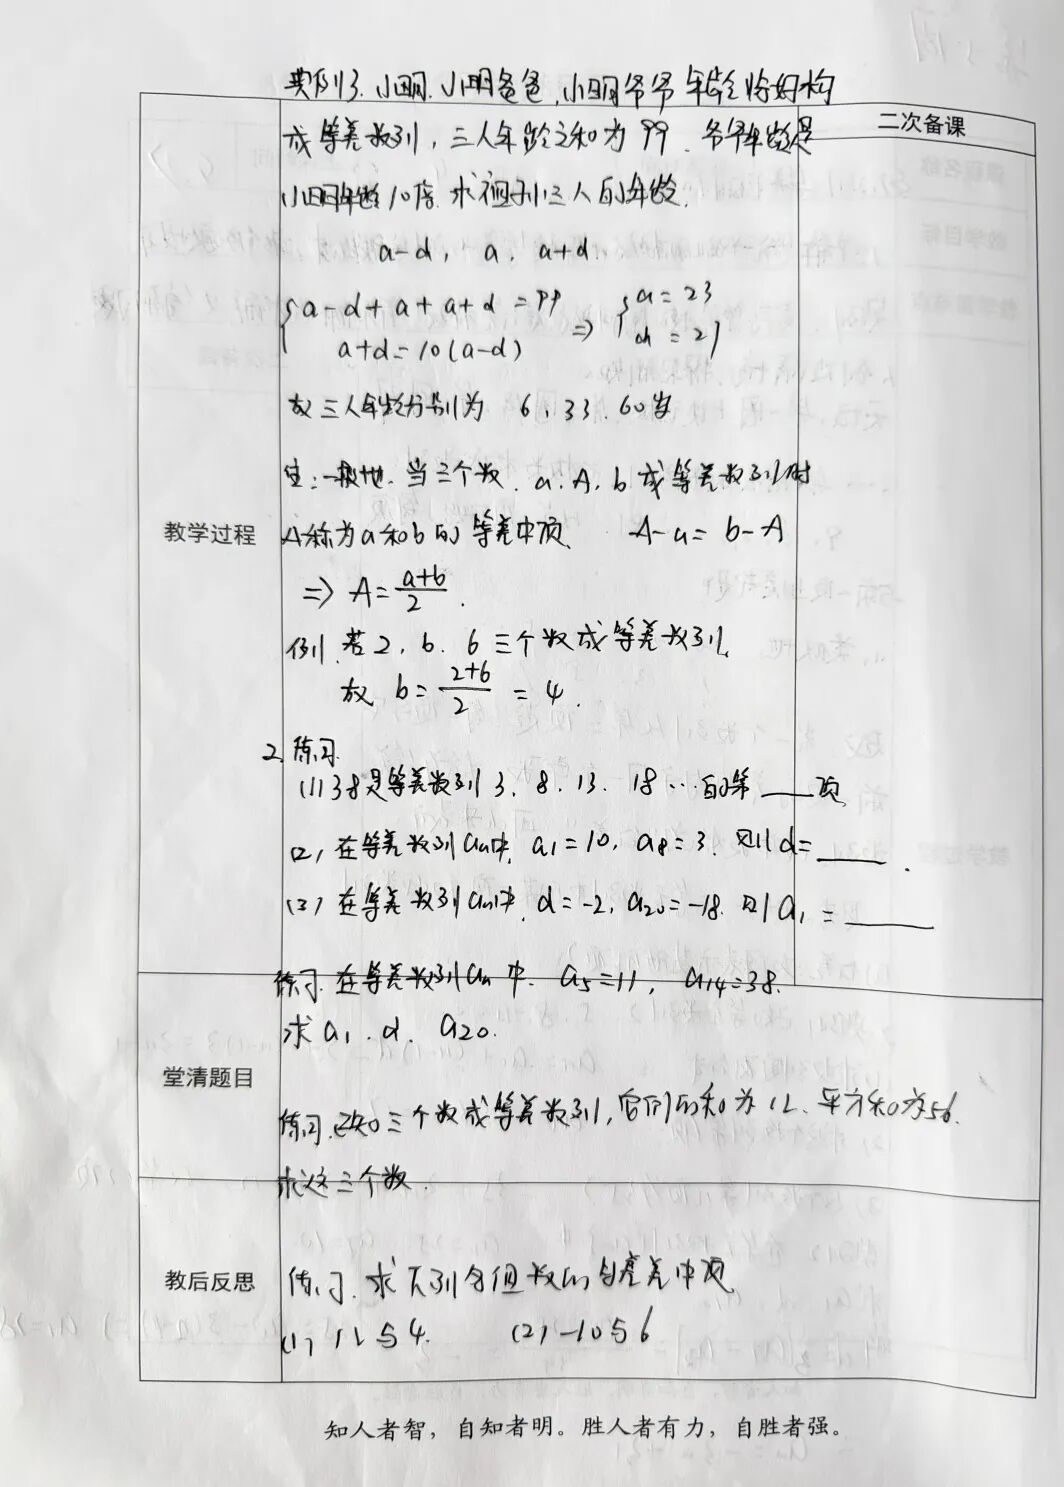 典例3.小明.小明爸爸,小明爷爷年龄恰好构
二次备课
成等差数列,三人年龄之和为99.爷爷年龄是
小明年龄10倍.求祖孙三人的年龄.
a-d, a, a+d
{a-d+a+a+d=99 ⇒ {a=23
a+d=10(a-d) d=27
故三人年龄分别为 6,33,60岁
教学过程
注:一般地.当三个数.a.A.b成等差数列时
A称为a和b的等差中项. A-a=b-A
⇒ A=\frac{a+b}{2}.
例.若2,b,6三个数成等差数列,
故 b=\frac{2+6}{2}=4.
2.练习
(1)38是等差数列3.8.13.18…的第____项
(2)在等差数列an中,a₁=10,a₈=3.则d=____.
(3)在等差数列an中.d=-2,a₂₀=-18.则a₁=____
练习.在等差数列an中.a₅=11,a₁₄=38.
求a₁.d.a₂₀.
堂清题目
练习.已知三个数成等差数列,它们的和为12.平方和为56.
求这三个数.
教后反思
练习.求下列各组数的等差中项
(1)12与4. (2)-10与6
知人者智,自知者明。胜人者有力,自胜者强。